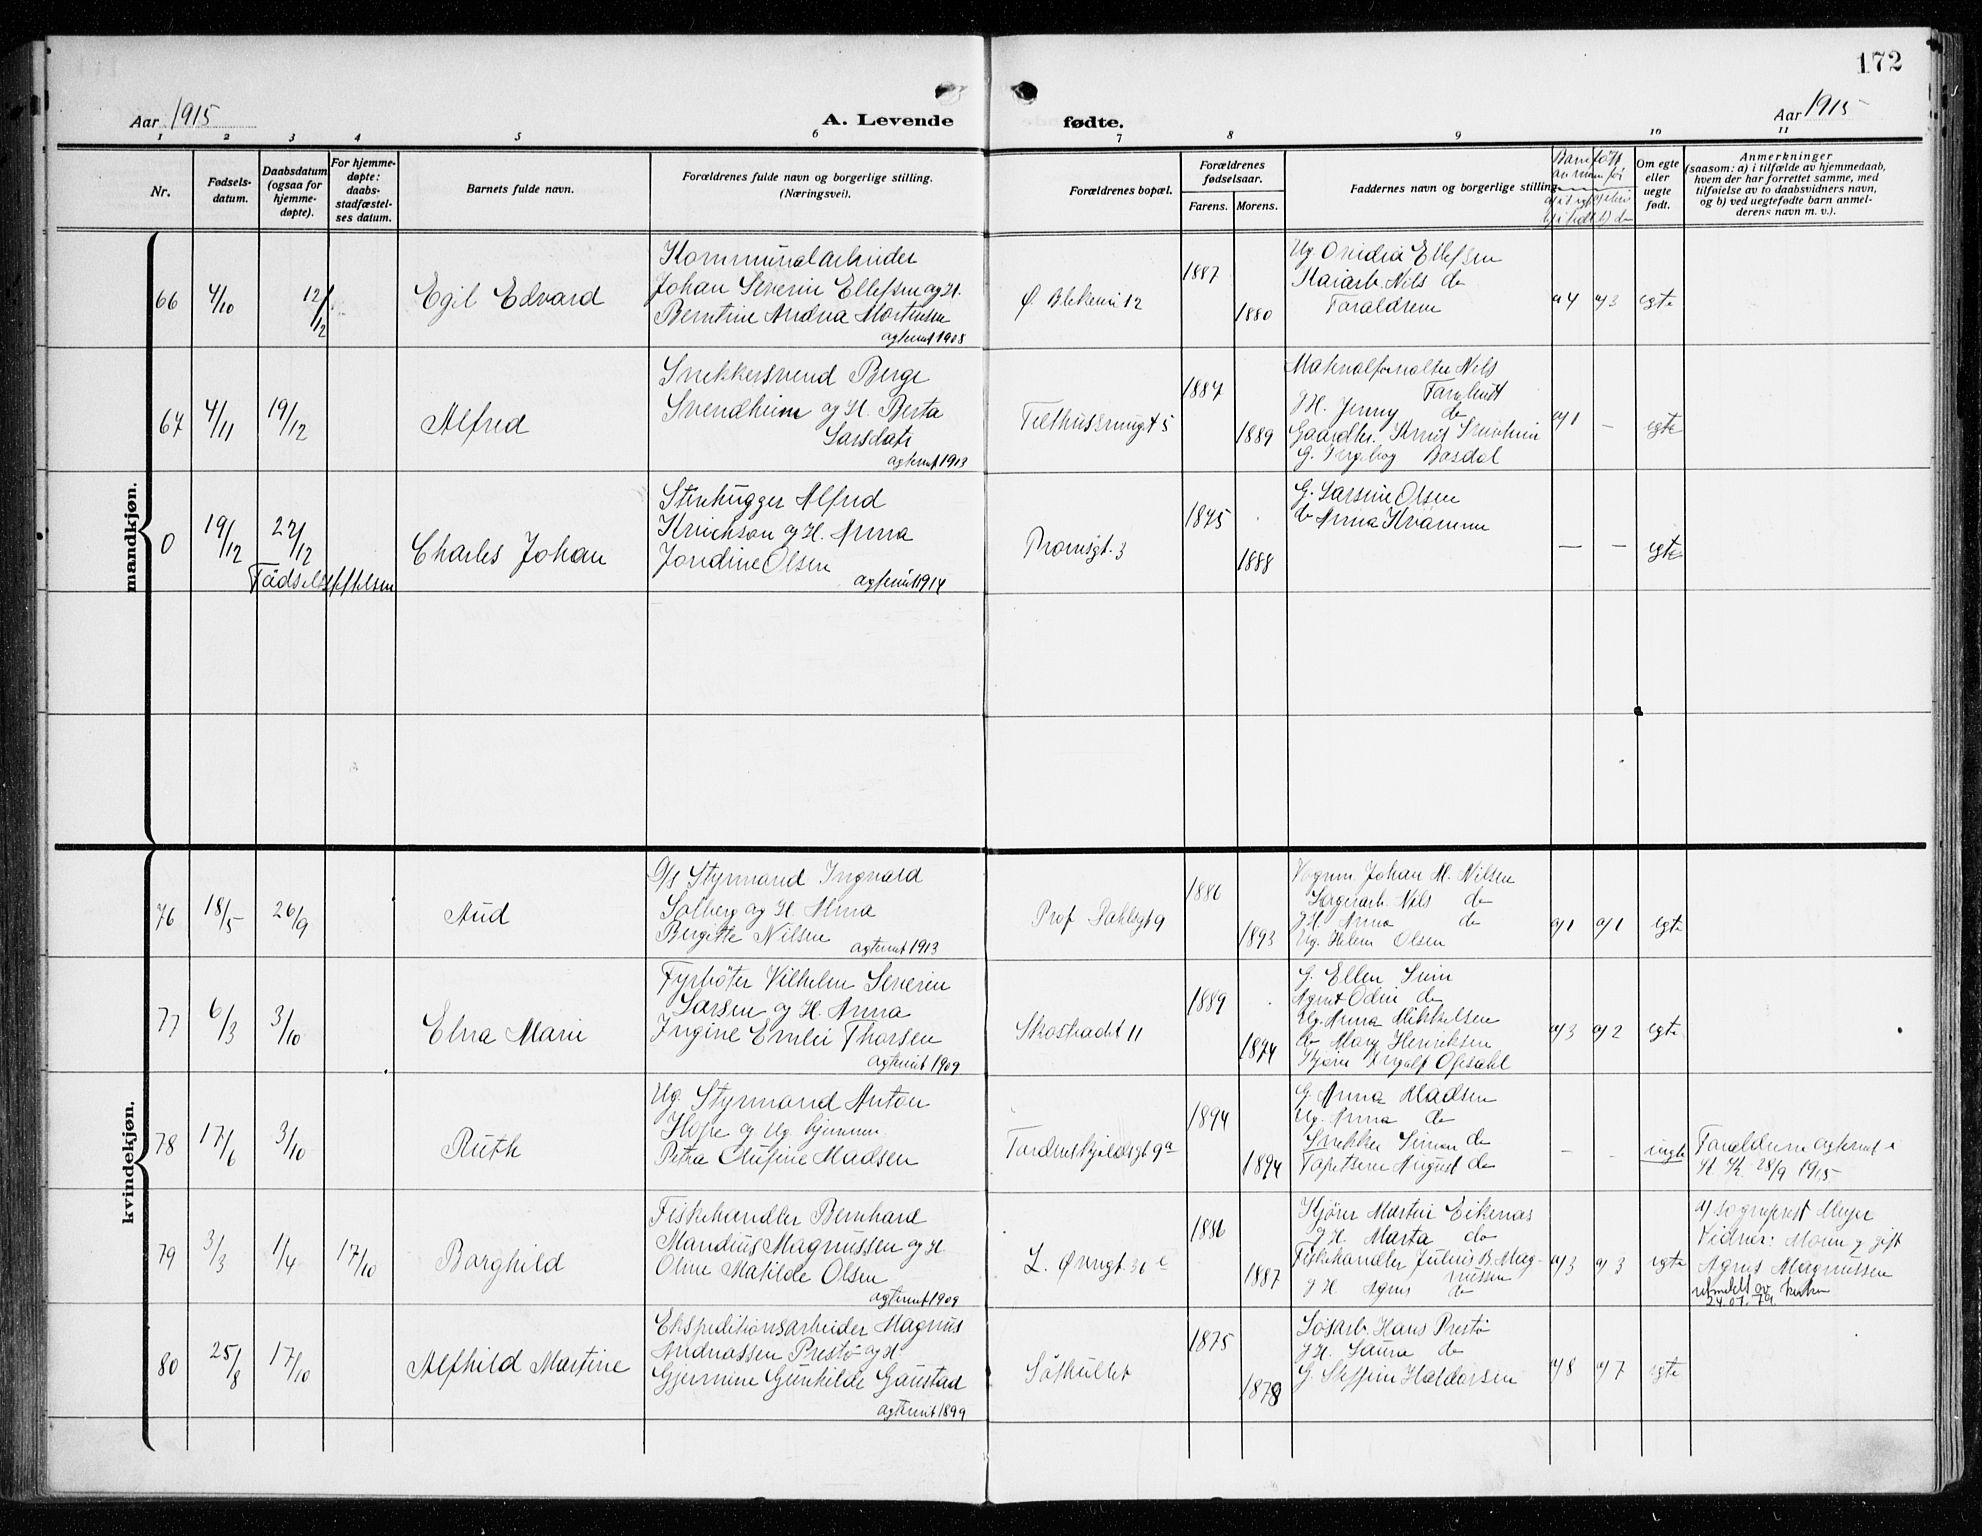 172
Aar 1915
A. Levende
fødte.
Aar 1915
1 2 3 4 5 6 7 8 9 10 11
Nr.
Fødsels-
datum.
Daabsdatum
(ogsaa for
hjemme-
døpte).
For hjemme-
døpte:
daabs-
stadfæstel-
ses datum.
Barnets fulde navn.
Forældrenes fulde navn og borgerlige stilling.
(Næringsvei).
Forældrenes bopæl.
Forældrenes
fødselsaar.
Farens. Morens.
Faddernes navn og borgerlige stilling.
Om egte
eller
uegte
født.
Anmerkninger
(saasom: a) i tilfælde av hjemmedaab,
hvem der har forrettet samme, med
tilføielse av to daabsvidners navn,
og b) ved uegtefødte barn anmel-
derens navn m. v.).
mandkjøn.
66 4/10 12/12
Egil Edvard
Kommunalarbeider
Johan Severin Ellefsen og H.
Berntine Andrea Mortensen
agteviet 1908
Ø. Blekevei 12
1887
1880
Ug. Ovidia Ellefsen
Kaiarb. Nils do
a/4 a/3 egte
67 4/11 19/12
Alfred
Snekkersvend Berge
Svendheim og H. Berta
agteviet 1913
Telthussmugt 5
1887
1889
Materialforvalter Nils
g H. Jenny do
Gaardbr. Knut
G. Ingeborg
a/1 – egte
0 19/12 27/12
Fødselsattesten
Charles Johan
Stenhugger Alfred
og H. Anna
Jondine Olsen
agteviet 1914
3
1875
1888
G. Larsine Olsen
do Anna Kvamme
– – egte
kvindekjøn.
76 18/5 26/9
Aud
G/s Styrmand Ingvald
Solberg og H. Anna
Bergitte Nilsen
agteviet 1913
Prof. Dahlsgt 9
1886
1893
Vognm. Johan M. Nilsen
Lagerarb. Nils do
g H. Anna do
Ug. Helene Olsen
a/1 a/1 egte
77 6/3 3/10
Elna Marie
Fyrbøter Vilhelm Severin
Larsen og H. Anna
Ingine Emlie Thorsen
agteviet 1909
Skostrædet 11
1889
1894
G. Ellen
Agent Odin do
Ug. Anna Mikkelsen
do Mary Henriksen
a/3 a/2 egte
78 17/6 3/10
Ruth
Ug. Styrmand Anton
Hope og Ug. hjemmev.
Petra Olufine Madsen
Tordenskjoldsgt 9a
1894
1894
G. Anna Madsen
Ug. Anna do
Snekker Simon do
Tapetserer August do
– – uegte
Foraldrene agteviet i
28/9 1915
79 3/3 1/4 17/10
Borghild
Fiskehandler Bernhard
Mandius Magnussen og H.
Oline Matilde Olsen
agteviet 1909
L. Øvregt. 36 c
1886
1887
Kjører Martin Eikenæs
g H. Marta do
Fiskehandler Julius B. Mag-
nussen
g H. Agnes do
a/3 a/3 egte
a/ Sogneprest Meyer
Vidner: Moren g gift
Agnes Magnussen
utmeldt av kirken
24.01.79
80 25/8 17/10
Alfhild Martine
Ekspeditionsarbeider Magnus
Andreassen Prestø og H.
Gjermine Gunhilde Gaustad
agteviet 1899
1875
1878
Løsarb. Hans Prestø
g H. Laura do
G. Steffine Haldorsen
a/8 a/7 egte